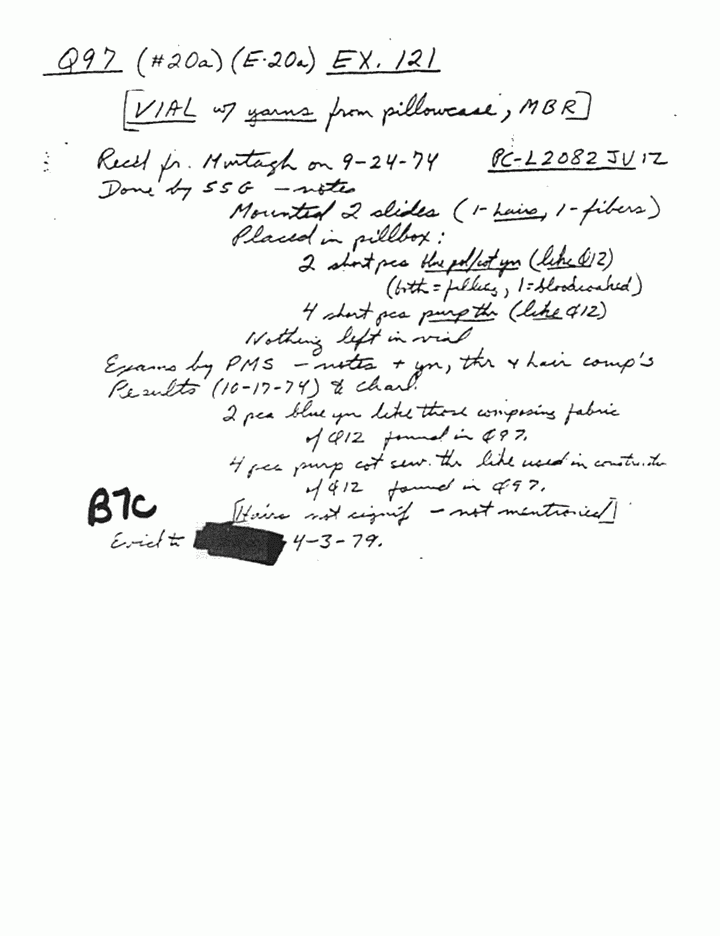 Q97 (#20a) (E-20a) EX. 121
[VIAL w/ yarns from pillowcase, MBR]
Rec'd fr. Murtagh on 9-24-74 PC-L2082 JV IZ
Done by SSG - notes
Mounted 2 slides (1-hairs, 1-fibers)
Placed in pillbox:
2 short pcs blue pol/cot yn (like Q12)
(both = fillies, 1 = bloodsoaked)
4 short pcs purp thr (like Q12)
Nothing left in vial
Exams by PMS - notes + yn, thr & hair comp's
Results (10-17-74) & chart:
2 pcs blue yn like those composing fabric
of Q12 found in Q97.
4 pcs purp cot sew. thr like used in
of Q12 found in Q97.
B7C
[Hairs not signif - not mentioned]
Evid to 4-3-79.